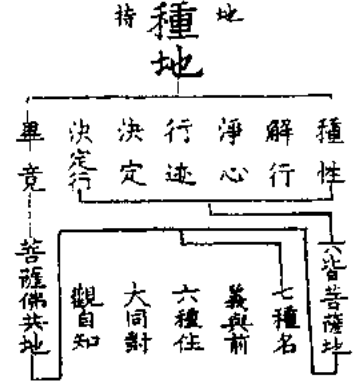 地持
種地
種性
解行
淨心
行迹
決定
決定行
畢竟
六皆菩薩地
七種名
義與前
六種住
大同對
觀自知
菩薩佛共地